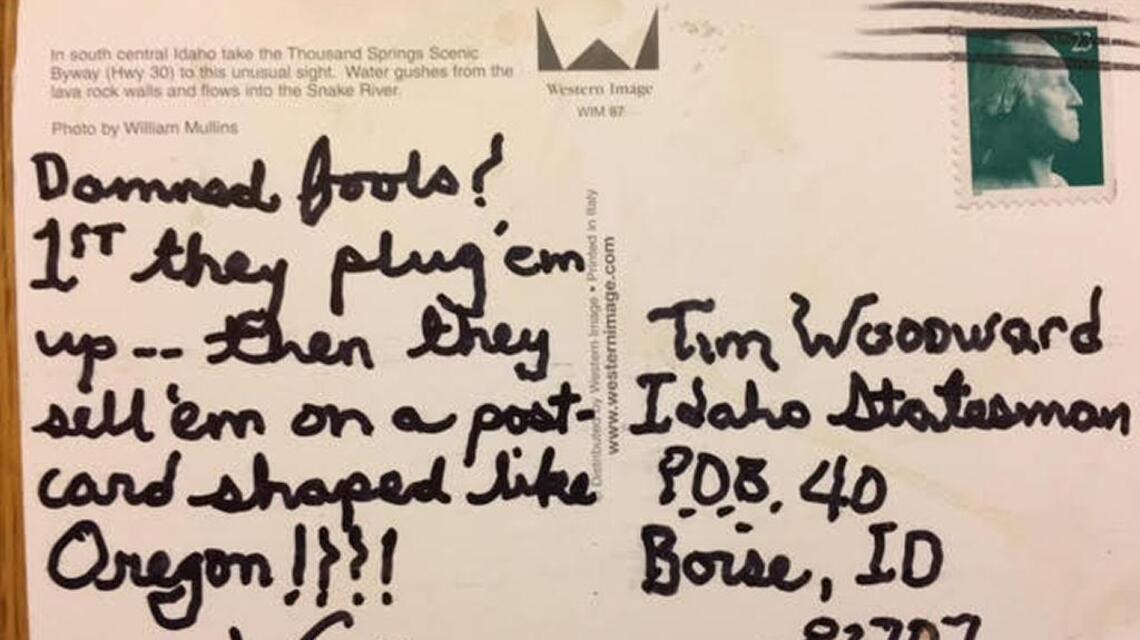 In south central Idaho take the Thousand Springs Scenic
Byway (Hwy 30) to this unusual sight. Water gushes from the
lava rock walls and flows into the Snake River.
Photo by William Mullins
Western Image
WIM 87
23
Damned fools!
1ST they plug 'em
up -- then they
sell 'em on a post-
card shaped like
Oregon!!!!
Distributed by Western Image • Printed in Italy
www.westernimage.com
Tim Woodward
Idaho Statesman
POB. 40
Boise, ID
83707